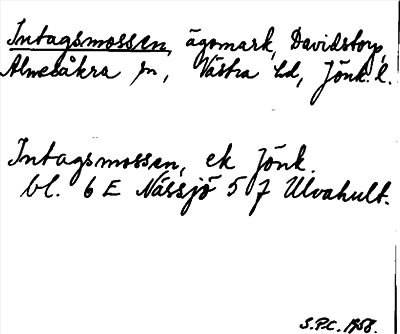 Intagsmossen, ägomark, Davidstorp,
Almesåkra sn, Västra hd, Jönk. l.
Intagsmossen, ek Jönk.
bl. 6 E Nässjö 5 f Ulvahult.
S.P.C. 1958.